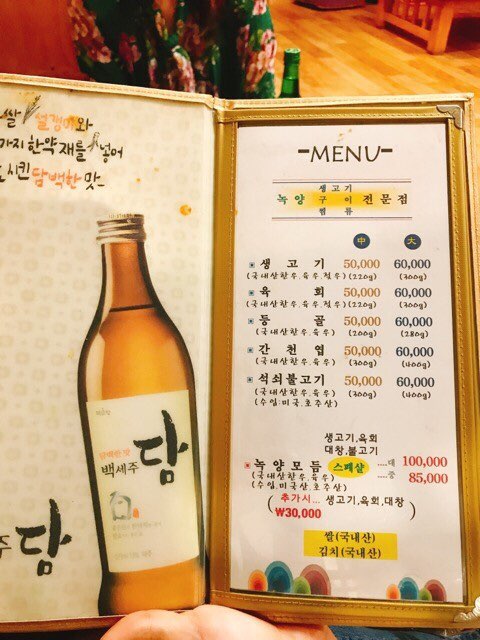 쌀 설갱미와
가지 한약 재를 넣어
시킨 담백한 맛
담백한 맛
백세주 담
주 담
-MENU-
생고기
녹양 구이 전문점
찜류
中 大
생고기 50,000 60,000
(국내산한우.육우.젖소) (220g) (300g)
육회 50,000 60,000
(국내산한우.육우.젖소) (220g) (300g)
등골 50,000 60,000
(국내산한우.육우) (200g) (280g)
간천엽 50,000 60,000
(국내산한우.육우) (300g) (400g)
석쇠불고기 50,000 60,000
(국내산한우.육우) (300g) (400g)
(수입:미국.호주산)
생고기,육회
대창,불고기
녹양모듬 스페샬 ....대 100,000
(국내산한우.육우) ....중 85,000
(수입:미국산.호주산)
(추가시... 생고기,육회,대창)
₩30,000
쌀(국내산)
김치(국내산)